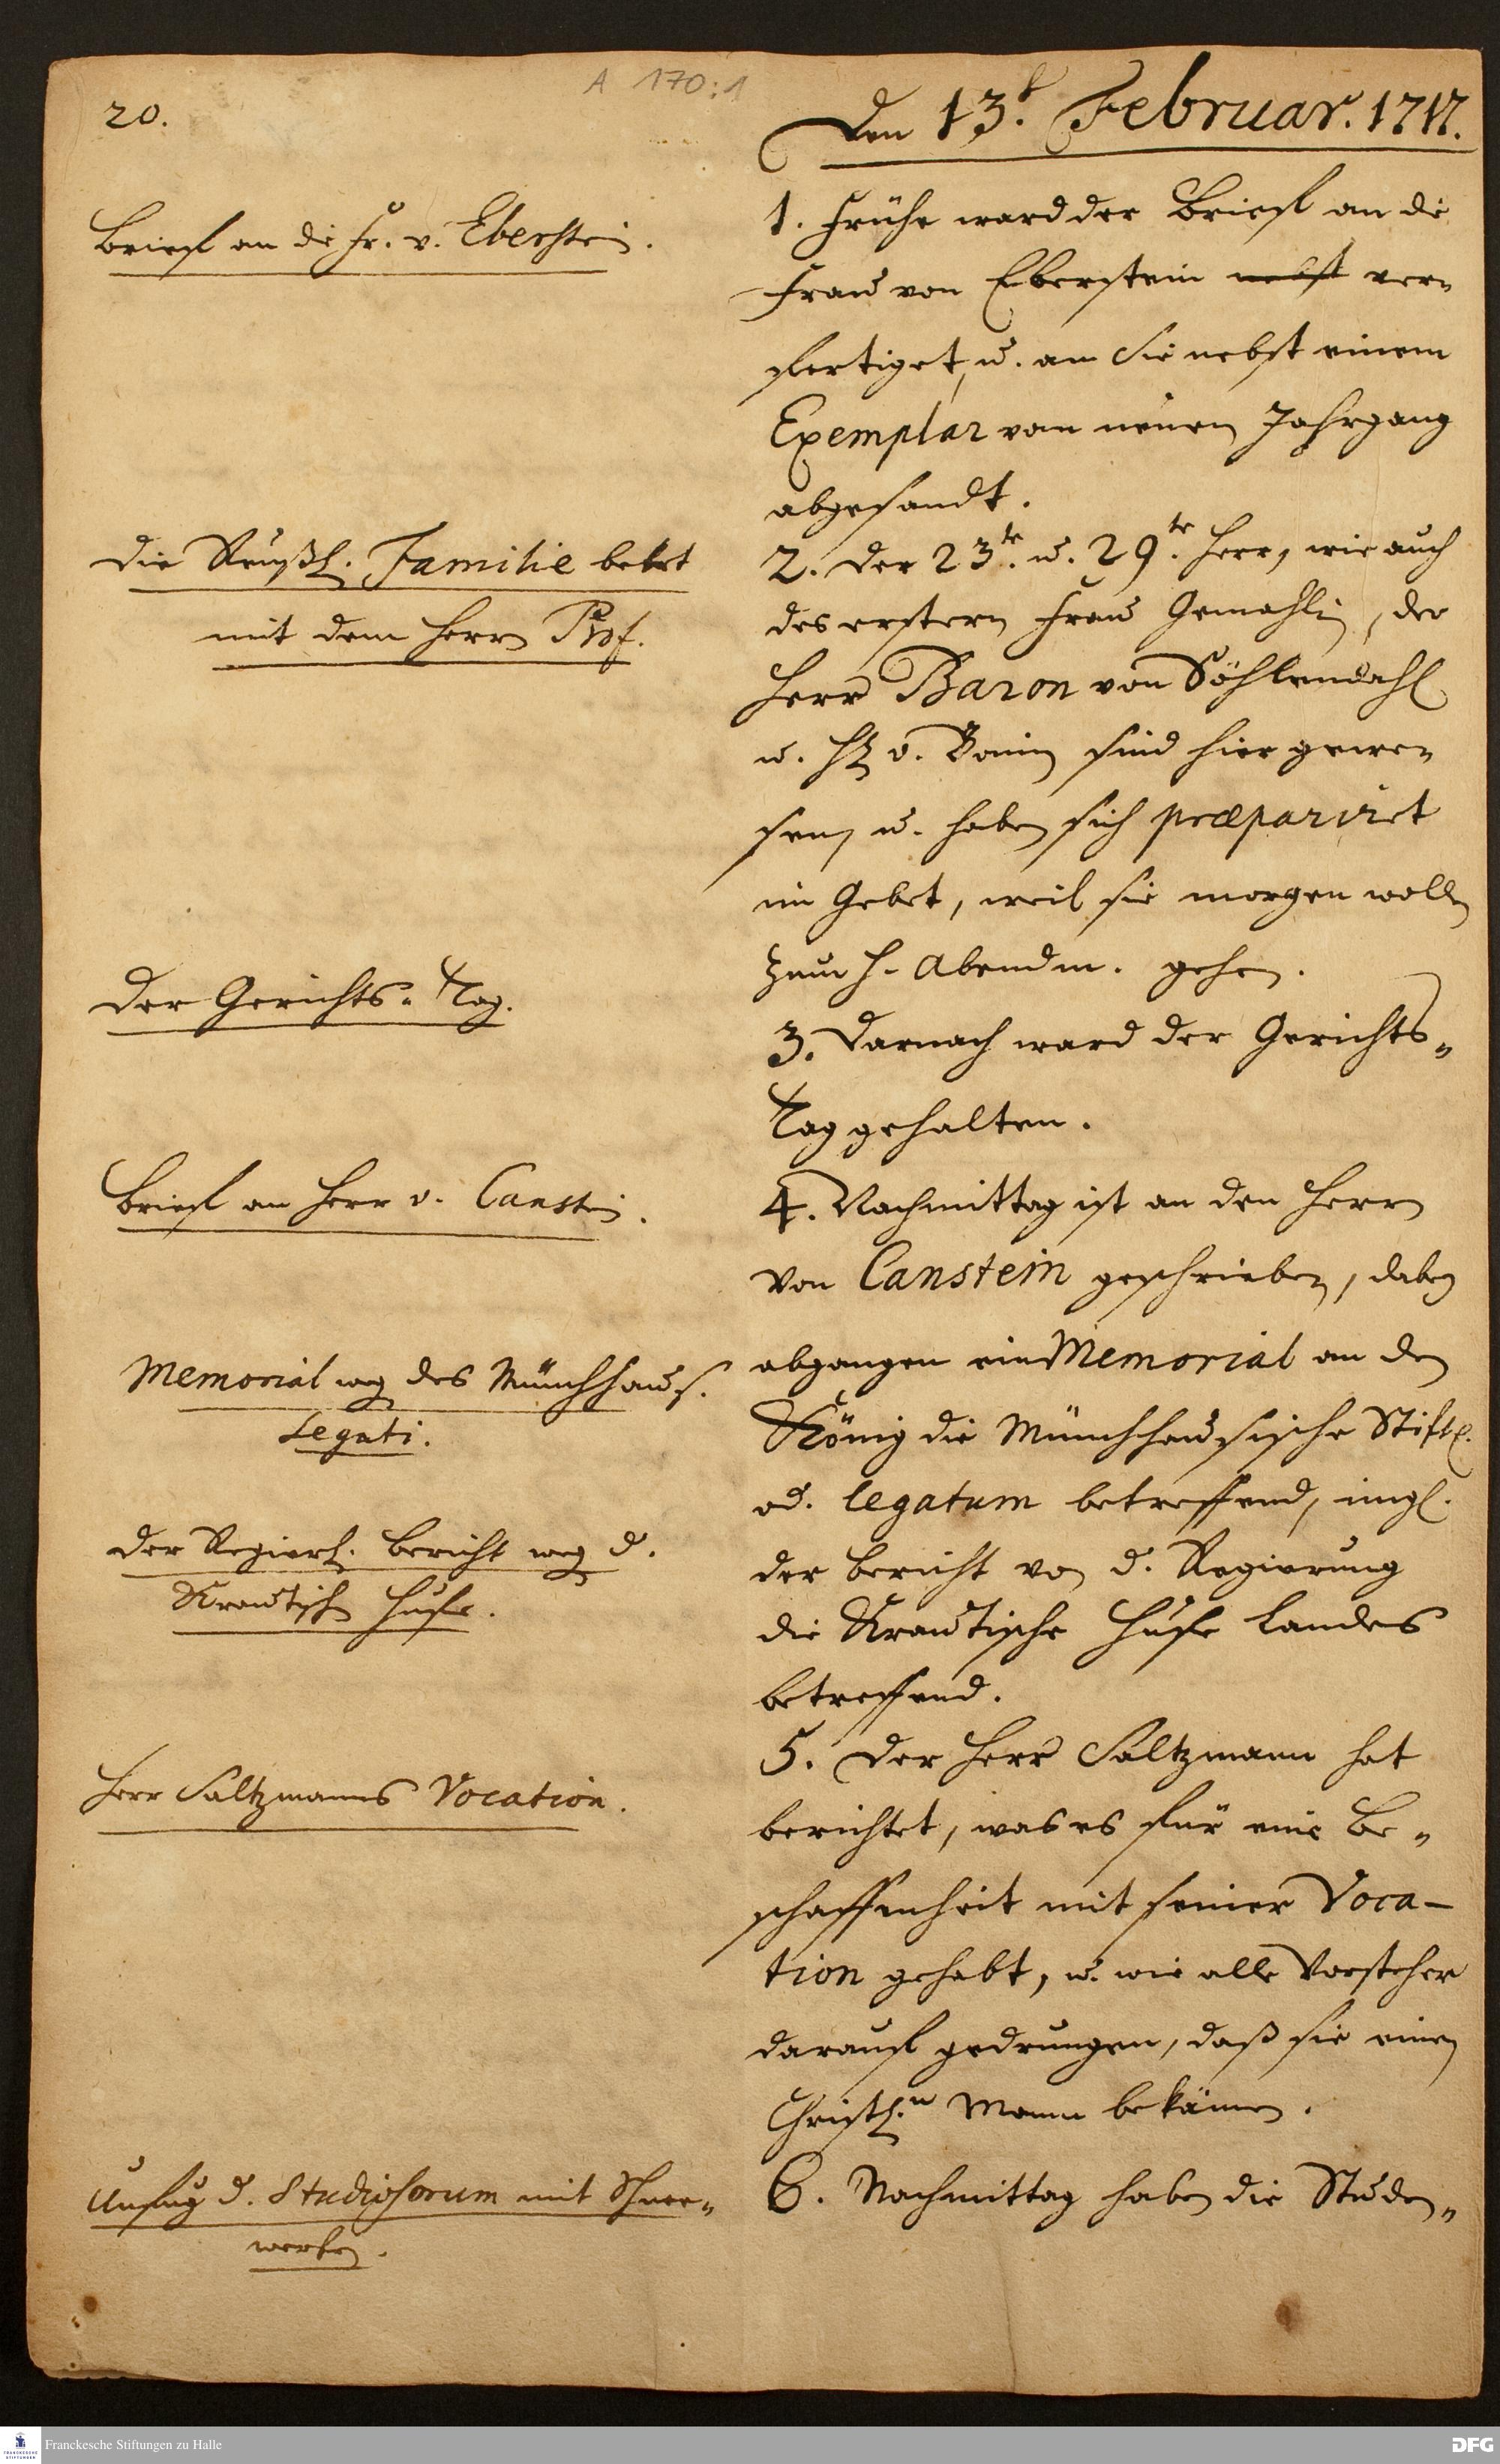 A 170:1
20.
Den 13.t Februar. 1717.
Brieff an die Fr. v. Eberstein.
1. Frühe ward der Brieff an die
Frau von Eberstein nebst ver=
fertiget, u. an Sie nebst einem
Exemplar vom neuen Jahrgang
abgesandt.
Die Reußl. Familie betet
mit dem Herrn Prof.
2. Der 23.te u. 29.te Herr, wie auch
des erstern Frau Gemahlin, der
Herr Baron von Söhlendahl
u. H. v. Bonin sind hier gewe=
sen, u. haben sich præpariret
im Gebet, weil sie morgen wollen
zum H. Abendm. gehen.
Der Gerichts=Tag.
3. Darnach ward der Gerichts=
Tag gehalten.
Brieff an Herr v. Canstein.
4. Nachmittag ist an den Herrn
von Canstein geschrieben, dabey
Memorial weg des Münchhaus.
Legati.
abgangen ein Memorial an den
König die Münchhausische Stift.
od. legatum betreffend, imgl.
Der Regierl. Bericht weg d.
Krautisch Hufe.
der Bericht von d. Regierung
die Krautische Hufe Landes
betreffend.
Herr Saltzmanns Vocation.
5. Der Herr Saltzmann hat
berichtet, was es für eine Be=
schaffenheit mit seiner Voca-
tion gehabt, u. wie alle Vorsteher
darauff gedrungen, daß sie einen
Christl.n Mann bekämen.
Unfug d. Studiosorum mit Schnee=
werfen.
6. Nachmittag haben die Studen=
Franckesche Stiftungen zu Halle
DFG